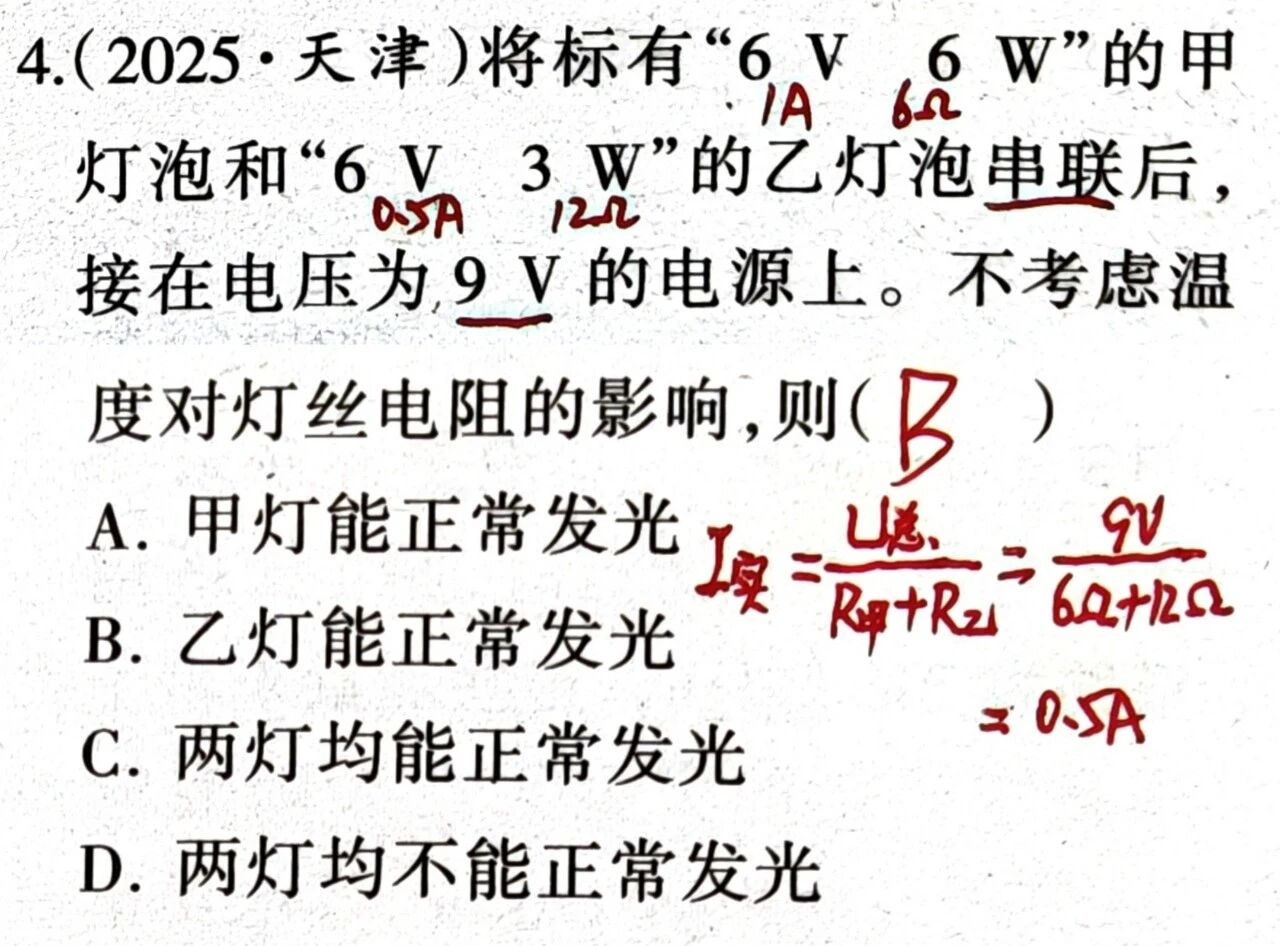 4.(2025·天津)将标有“6 V 6 W”的甲
1A 6Ω
灯泡和“6 V 3 W”的乙灯泡串联后,
0.5A 12Ω
接在电压为 9 V 的电源上。不考虑温
度对灯丝电阻的影响,则( B )
A. 甲灯能正常发光
I实 = U总/(R甲+R乙) = 9V/(6Ω+12Ω)
B. 乙灯能正常发光
= 0.5A
C. 两灯均能正常发光
D. 两灯均不能正常发光